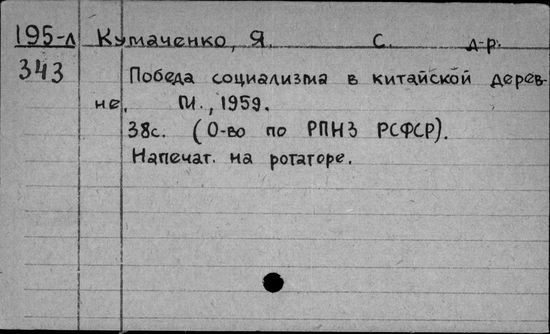 195-л Кумаченко, Я. С. д-р.
343
Победа социализма в китайской дерев-
не. М., 1959.
38с. (О-во по РПНЗ РСФСР).
Напечат. на ротаторе.